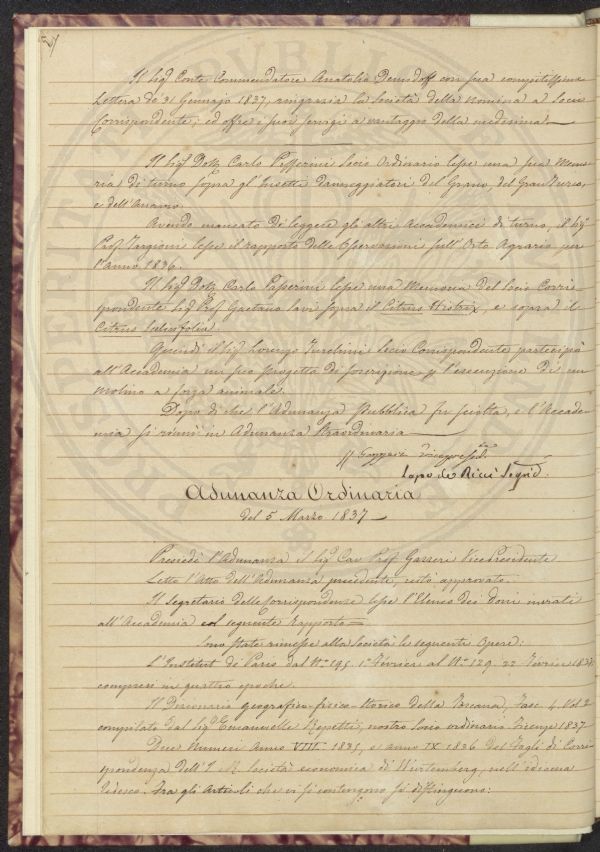 Il Sig.r Conte Commendatore Anatolio Demidoff con sua compitissima
Lettera de 31 Gennajo 1837, ringrazia la Società della nomina a Socio
Corrispondente; ed offre i suoi servigi a vantaggio della medesima.—
Il Sig.r Dott. Carlo Passerini Socio Ordinario lesse una sua Memo-
ria di turno sopra gl'Insetti danneggiatori del Grano, del Gran Turco,
e dell'
Avendo mancato di leggere gli altri Accademici di turno, il Sig.r
Prof. Targioni lesse il rapporto delle Osservazioni sull'Orto Agrario per
l'anno 1836.
Il Sig.r Dott. Carlo Passerini lesse una Memoria del Socio Corris-
pondente Sig.r Prof. Gaetano Savi sopra il Citrus Histrix, e sopra il
Citrus
Quindi il Sig.r Lorenzo Turchini Socio Corrispondente partecipò
all'Accademia un suo progetto di soscrizione p. l'esecuzione di un
molino a forza animale.
Dopo di che l'Adunanza Pubblica fu sciolta, e l'Accade-
mia si riunì in Adunanza Straordinaria—
Gazzeri Vicepresid.
Lapo de Ricci Segrio.
Adunanza Ordinaria
del 5 Marzo 1837—
Presiede l'Adunanza il Sig.r Cav. Prof. Gazzeri Vice Presidente
Letto l'Atto dell'Adunanza precedente, restò approvato.
Il Segretario delle Corrispondenze lesse l'Elenco dei doni inviati
all'Accademia col seguente rapporto=
Sono state rimesse alla Società le seguenti Opere:
L'Institut di Paris dal N.o 195. 1.o Février al N.o 129. 22 Février 1837
compresi in quattro epoche.
Il Dizionario geografico-fisico-storico della Toscana, Fasc. 4. Vol. 2
compilato dal Sig.r Emanuelle Repetti, nostro Socio ordinario Firenze 1837
Due Numeri Anno VIII 1835, e anno IX 1836 dei Fogli di Corri-
spondenza dell'I. R. Società economica di Würtemberg, nell'idioma
tedesco. Tra gli Articoli che vi si contengono si distinguono: